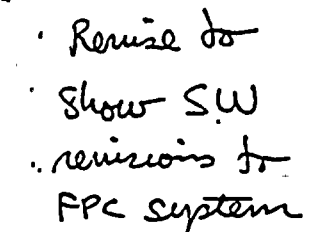 · Revise to
· Show SW
· revisions to
FPC system